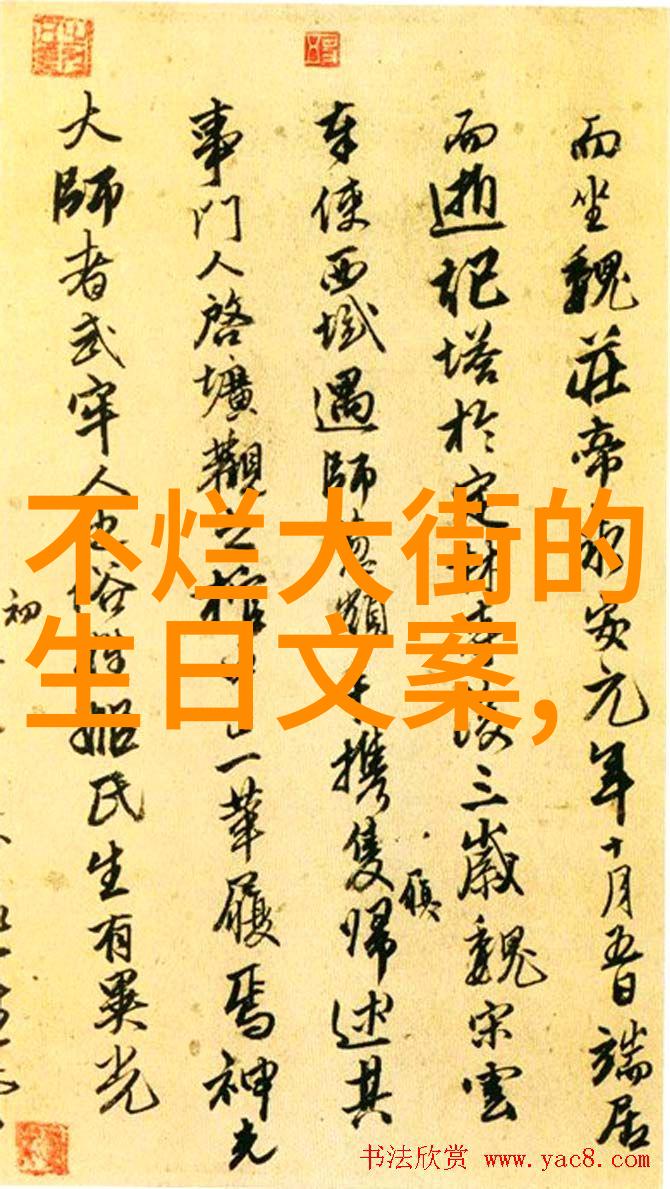 不烂大街的
生日文案,
而坐魏莊帝永安元年十月五日端居
而逝記塔於定林寺後三歲魏宋雲
奉使西域遇師葱嶺手携隻歸述其
履
事門人啓壙觀之棺一革履焉神光
大師者武牢人也俗姓姬氏生有異光
初
书法欣赏 www.yac8.com